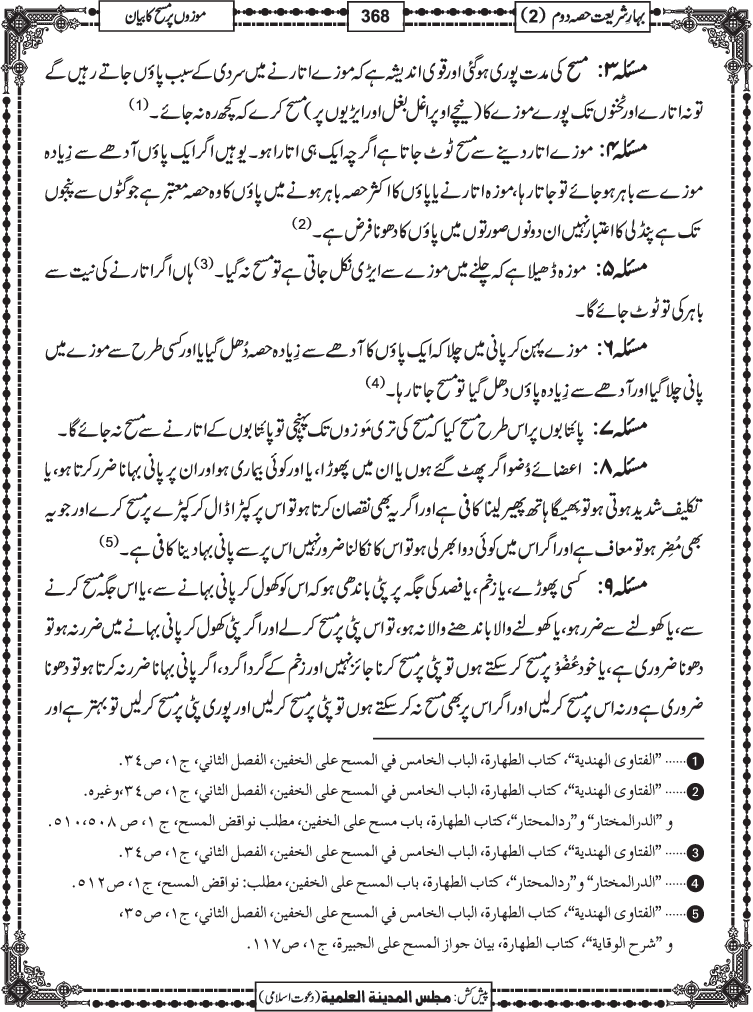 بہارِ شریعت حصہ دوم (2)
368
موزوں پر مسح کا بیان
مسئلہ ۳: مسح کی مدت پوری ہوگئی اور قوی اندیشہ ہے کہ موزے اتارنے میں سردی کے سبب پاؤں جاتے رہیں گے
تو نہ اتارے اور ٹخنوں تک پورے موزے کا (نیچے اوپر اغل بغل اور ایڑیوں پر) مسح کرے کہ کچھ رہ نہ جائے۔ (1)
مسئلہ ۴: موزے اتار دینے سے مسح ٹوٹ جاتا ہے اگرچہ ایک ہی اتارا ہو۔ یوہیں اگر ایک پاؤں آدھے سے زِیادہ
موزے سے باہر ہو جائے تو جاتا رہا، موزہ اتارنے یا پاؤں کا اکثر حصہ باہر ہونے میں پاؤں کا وہ حصہ معتبر ہے جو گٹوں سے پنجوں
تک ہے پنڈلی کا اعتبار نہیں ان دونوں صورتوں میں پاؤں کا دھونا فرض ہے۔ (2)
مسئلہ ۵: موزہ ڈھیلا ہے کہ چلنے میں موزے سے ایڑی نکل جاتی ہے تو مسح نہ گیا۔ (3) ہاں اگر اتارنے کی نیت سے
باہر کی تو ٹوٹ جائے گا۔
مسئلہ ۶: موزے پہن کر پانی میں چلا کہ ایک پاؤں کا آدھے سے زِیادہ حصہ دُھل گیا یا اور کسی طرح سے موزے میں
پانی چلا گیا اور آدھے سے زِیادہ پاؤں دھل گیا تو مسح جاتا رہا۔ (4)
مسئلہ ۷: پائتابوں پر اس طرح مسح کیا کہ مسح کی تری مَوزوں تک پہنچی تو پائتابوں کے اتارنے سے مسح نہ جائے گا۔
مسئلہ ۸: اعضائے وُضو اگر پھٹ گئے ہوں یا ان میں پھوڑا، یا اور کوئی بیماری ہو اور ان پر پانی بہانا ضرر کرتا ہو، یا
تکلیف شدید ہوتی ہو تو بِھیگا ہاتھ پھیر لینا کافی ہے اور اگر یہ بھی نقصان کرتا ہو تو اس پر کپڑا ڈال کر کپڑے پر مسح کرے اور جو یہ
بھی مُضِر ہو تو معاف ہے اور اگر اس میں کوئی دوا بھر لی ہو تو اس کا نکالنا ضرور نہیں اس پر سے پانی بہا دینا کافی ہے۔ (5)
مسئلہ ۹: کسی پھوڑے، یا زخم، یا فصد کی جگہ پر پٹی باندھی ہو کہ اس کو کھول کر پانی بہانے سے، یا اس جگہ مسح کرنے
سے، یا کھولنے سے ضرر ہو، یا کھولنے والا باندھنے والا نہ ہو، تو اس پٹی پر مسح کر لے اور اگر پٹی کھول کر پانی بہانے میں ضرر نہ ہو تو
دھونا ضروری ہے، یا خود عُضْوْ پر مسح کر سکتے ہوں تو پٹی پر مسح کرنا جائز نہیں اور زخم کے گرداگرد، اگر پانی بہانا ضرر نہ کرتا ہو تو دھونا
ضروری ہے ورنہ اس پر مسح کر لیں اور اگر اس پر بھی مسح نہ کر سکتے ہوں تو پٹی پر مسح کر لیں اور پوری پٹی پر مسح کر لیں تو بہتر ہے اور
1 ...... ”الفتاوی الھندیة“، کتاب الطھارة، الباب الخامس في المسح علی الخفین، الفصل الثاني، ج١، ص٣٤.
2 ...... ”الفتاوی الھندیة“، کتاب الطھارة، الباب الخامس في المسح علی الخفین، الفصل الثاني، ج١، ص٣٤، وغیرہ.
و ”الدرالمختار“ و”ردالمحتار“، کتاب الطھارة، باب مسح علی الخفین، مطلب نواقض المسح، ج ١، ص ٥٠٨، ٥١٠.
3 ...... ”الفتاوی الھندیة“، کتاب الطھارة، الباب الخامس في المسح علی الخفین، الفصل الثاني، ج١، ص٣٤.
4 ...... ”الدرالمختار“ و”ردالمحتار“، کتاب الطھارة، باب المسح علی الخفین، مطلب: نواقض المسح، ج١، ص٥١٢.
5 ...... ”الفتاوی الھندیة“، کتاب الطھارة، الباب الخامس في المسح علی الخفین، الفصل الثاني، ج١، ص٣٥،
و ”شرح الوقایة“، کتاب الطھارة، بیان جواز المسح علی الجبیرة، ج١، ص١١٧.
پیش کش: مجلس المدینة العلمیة (دعوت اسلامی)